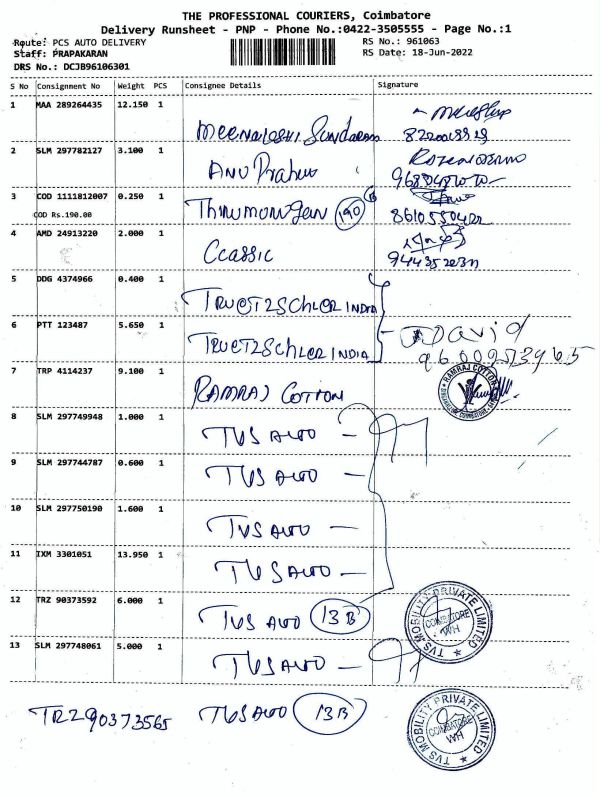 THE PROFESSIONAL COURIERS, Coimbatore
Delivery Runsheet - PNP - Phone No.:0422-3505555 - Page No.:1
Route: PCS AUTO DELIVERY RS No.: 961063
Staff: PRAPAKARAN RS Date: 18-Jun-2022
DRS No.: DCJB96106301
S No Consignment No Weight PCS Consignee Details Signature
1 MAA 289264435 12.150 1
Meenakshi Sundaram
2 SLM 297782127 3.100 1
Anu Prabhu
3 COD 1111812007 0.250 1
COD Rs.190.00
Thirumurugan 190
4 AMD 24913220 2.000 1
Classic
5 DDG 4374966 0.400 1
TRUETZSCHLER INDIA
6 PTT 123487 5.650 1
TRUETZSCHLER INDIA David
9600953965
7 TRP 4114237 9.100 1
RAMRAJ COTTON RAMRAJ COTTON
8 SLM 297749948 1.000 1
TVS AUTO -
9 SLM 297744787 0.600 1
TVS AUTO -
10 SLM 297750190 1.600 1
TVS AUTO -
11 IXM 3301051 13.950 1
TVS AUTO -
12 TRZ 90373592 6.000 1
TVS AUTO 13B TVS MOBILITY PRIVATE LIMITED COIMBATORE WH
13 SLM 297748061 5.000 1
TVS AUTO -
TRZ90373565 TVS AUTO 13B TVS MOBILITY PRIVATE LIMITED COIMBATORE WH